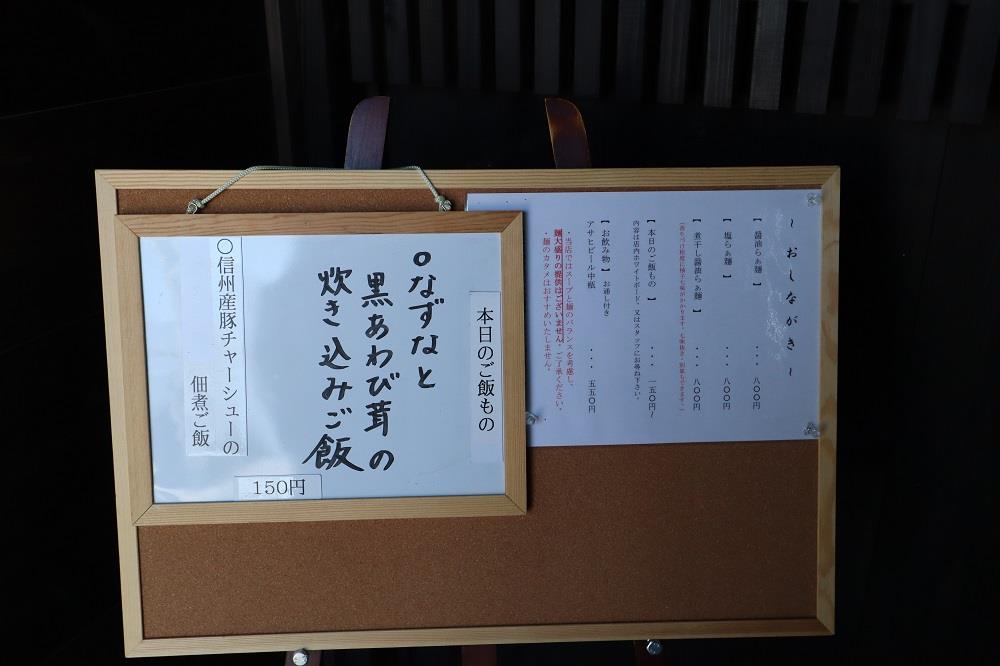 本日のご飯もの
○なずなと
黒あわび茸の
炊き込みご飯
○信州産豚チャーシューの
佃煮ご飯
150円
～ おしながき ～
【 醤油らぁ麺 】 ・・・ 八〇〇円
【 塩らぁ麺 】 ・・・ 八〇〇円
【 煮干し醤油らぁ麺 】 ・・・ 八〇〇円
【 本日のご飯もの 】 ・・・ 一五〇円～
内容は店内ホワイトボード、又はスタッフにお尋ね下さい。
【 お飲み物 】 お通し付き
アサヒビール中瓶 ・・・ 五五〇円
・当店ではスープと麺のバランスを考慮し、
麺大盛りの提供はございません。ご了承ください。
・麺のカタメはおすすめいたしません。